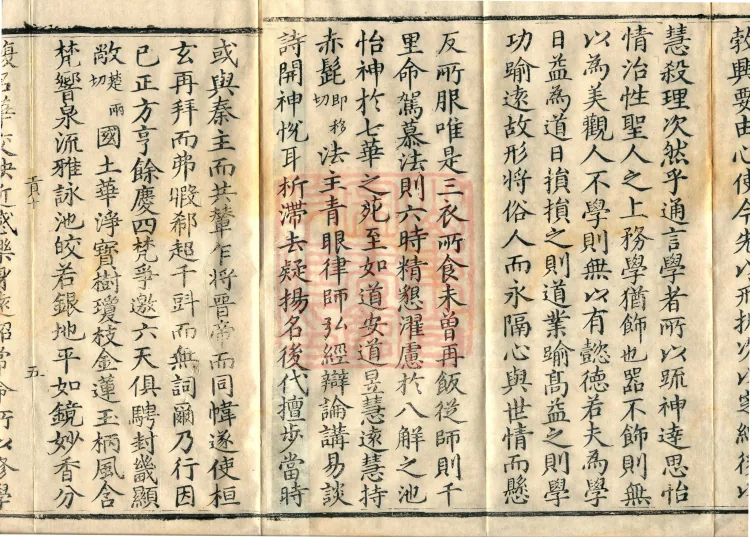 敦興要由心使今先以形extract次以空經後以
慧殺理次然乎通言學者所以疏神達思怡
情治性聖人之上務學猶飾也器不飾則無
以為美觀人不學則無以有懿德若夫為學
日益為道日損損之則道業踰高益之則學
功踰遠故形將俗人而永隔心與世情而懸
反所服唯是三衣所食未曽再飯從師則千
里命駕慕法則六時精懇濯慮於八解之池
怡神於七華之苑至如道安道昱慧遠慧持
赤髭即移切法主青眼律師弘經辯論講易談
詩開神悅耳析滯去疑揚名後代擅步當時
或與秦主而共輦乍將晉帝而同幃遂使桓
玄再拜而弗暇郗超千㪷而無詞爾乃行因
已正方亨餘慶四梵爭邀六天俱騁封畿顯
敞楚兩切國土華淨寳樹瓊枝金蓮玉柄風含
梵響泉流雅詠池皎若銀地平如鏡妙香分
貢十 五